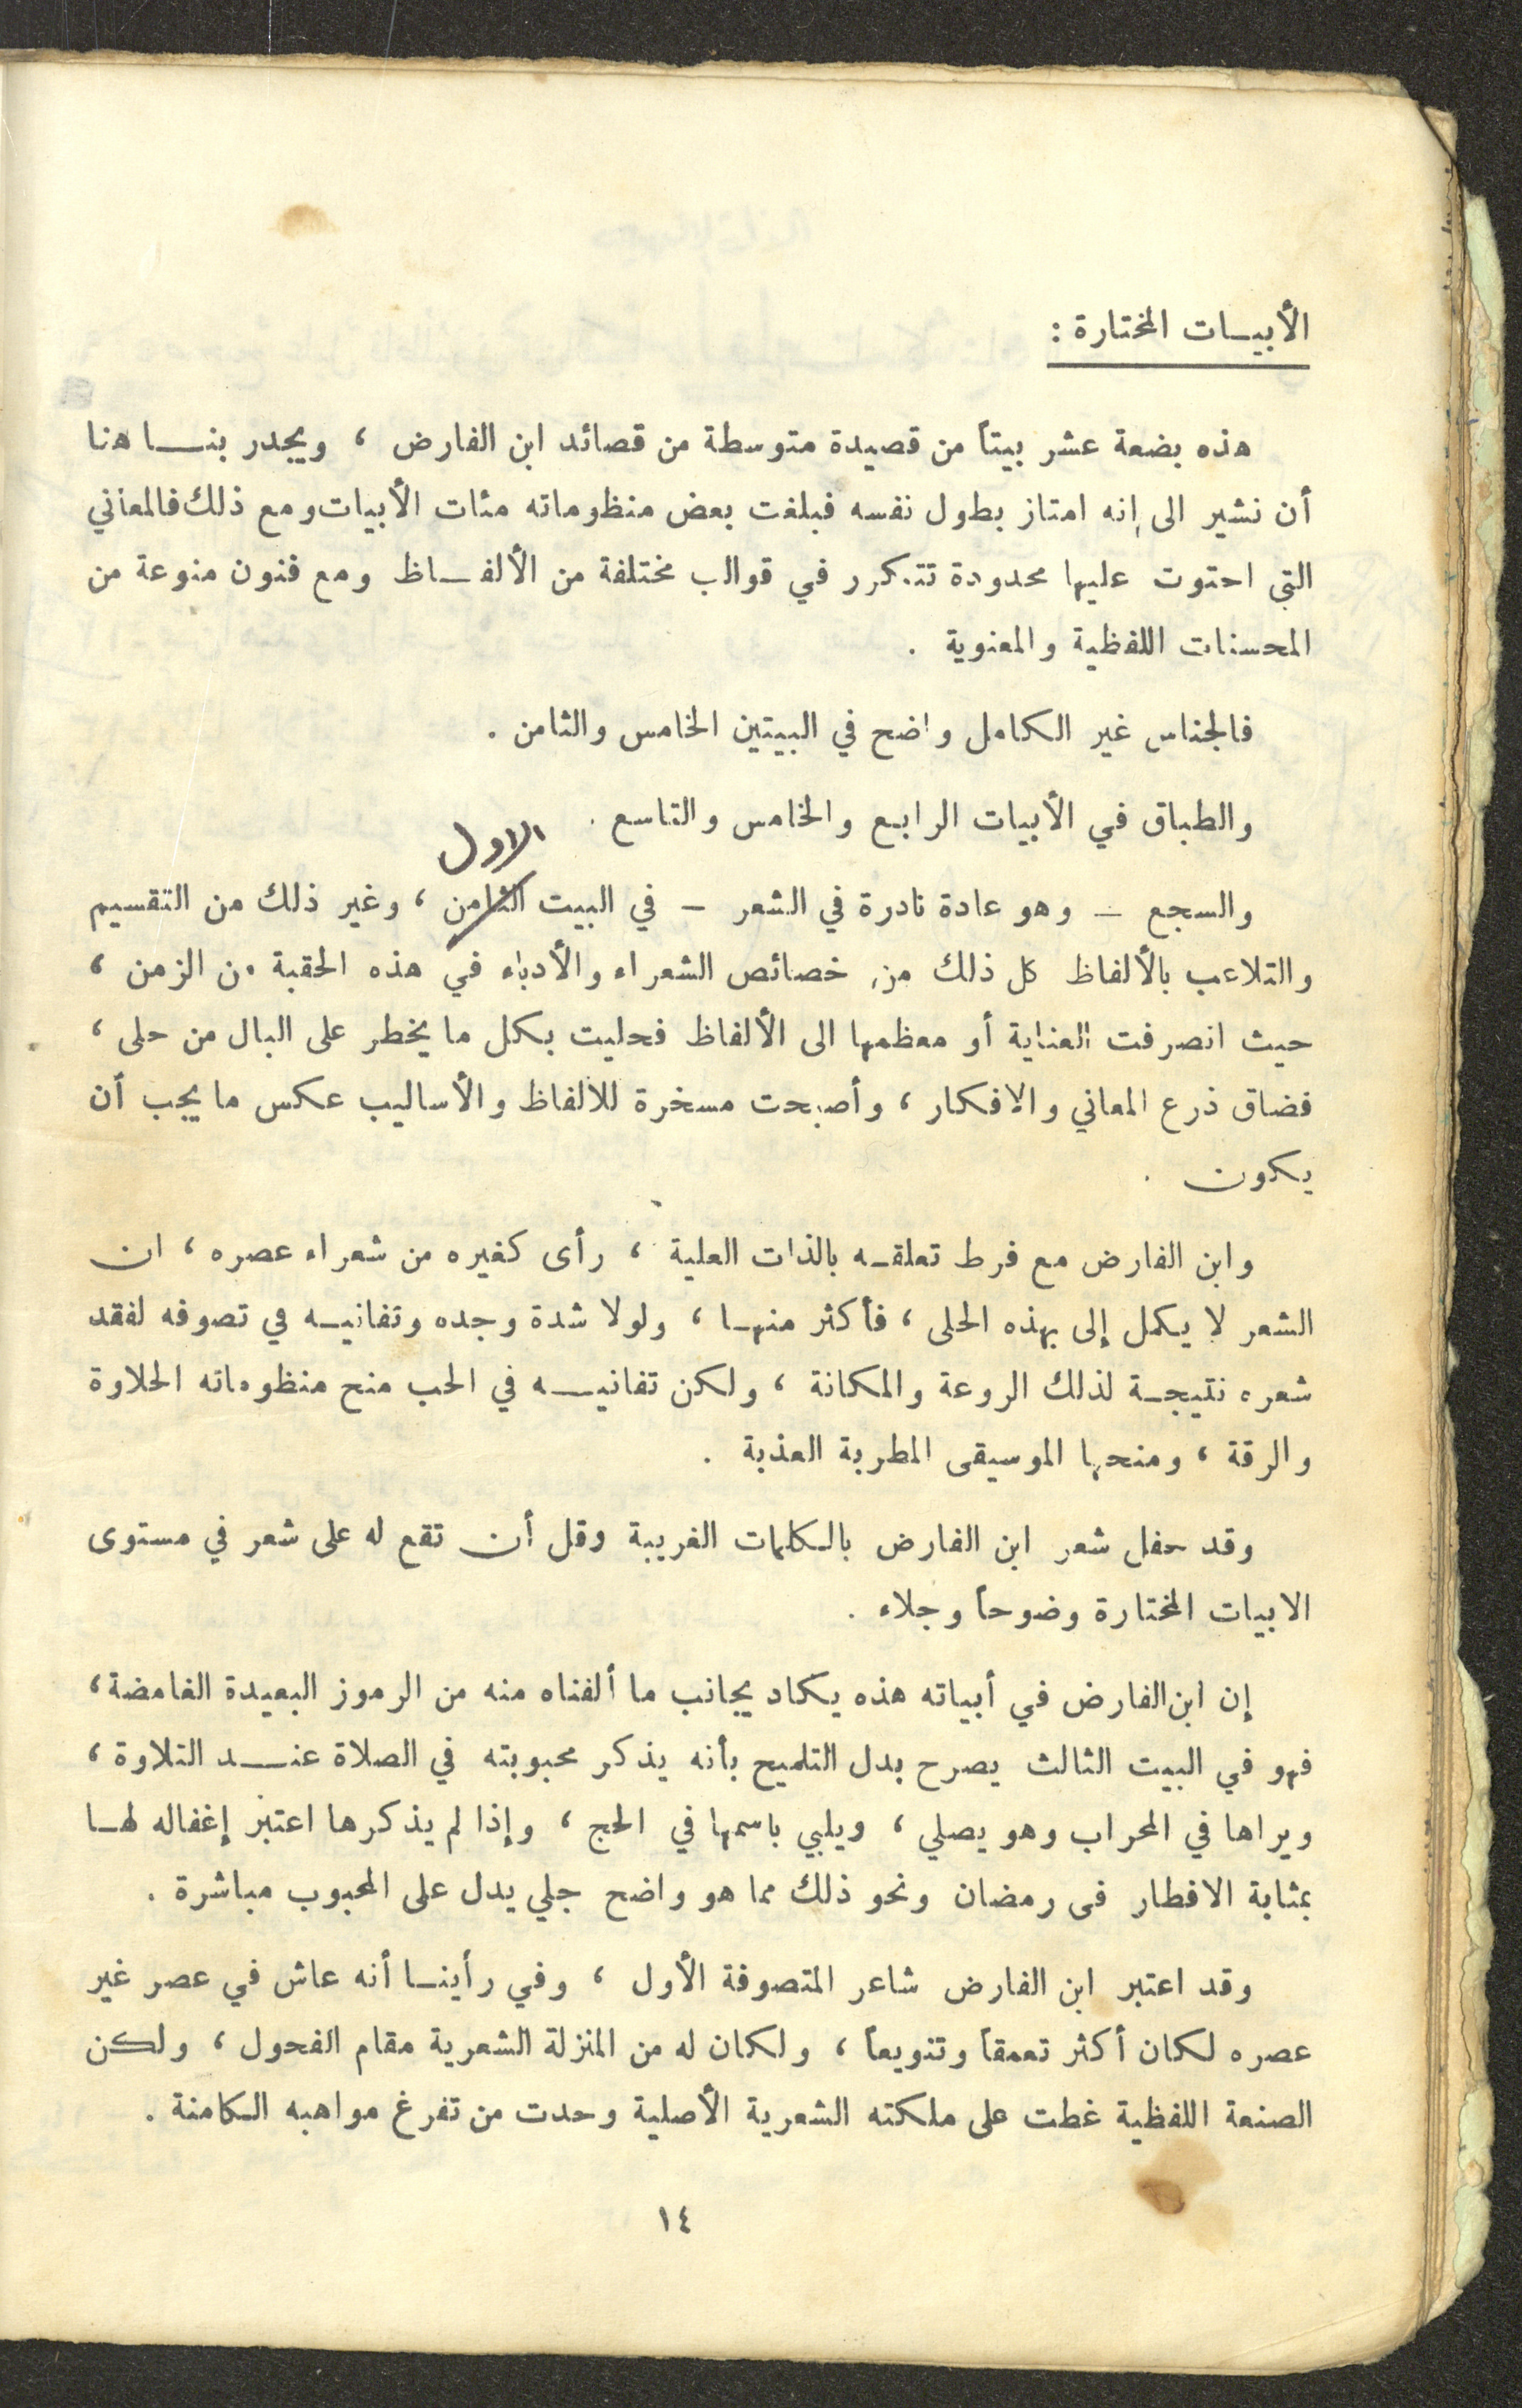 الأبيـات المختارة :
هذه بضعة عشر بيتاً من قصيدة متوسطة من قصائد ابن الفارض ، ويجدر بنـا هنا
أن نشير الى إنه امتاز بطول نفسه فبلغت بعض منظوماته مئات الأبيات ومع ذلك فالمعاني
التي احتوت عليها محدودة تتكرر في قوالب مختلفة من الألفـاظ ومع فنون منوعة من
المحسنات اللفظية والمعنوية .
فالجناس غير الكامل واضح في البيتين الخامس والثامن .
والطباق في الأبيات الرابع والخامس والتاسع .
الاول
والسجع – وهو عادة نادرة في الشعر – في البيت الثامن ، وغير ذلك من التقسيم
والتلاعب بالألفاظ كل ذلك من خصائص الشعراء والأدباء في هذه الحقبة من الزمن ،
حيث انصرفت العناية أو معظمها الى الألفاظ فحليت بكل ما يخطر على البال من حلى ،
فضاق ذرع المعاني والافكار ، وأصبحت مسخرة للالفاظ والأساليب عكس ما يجب أن
يكون .
وابن الفارض مع فرط تعلقـه بالذات العلية ، رأى كغيره من شعراء عصره ، ان
الشعر لا يكمل إلى بهذه الحلى ، فأكثر منهـا ، ولولا شدة وجده وتفانيـه في تصوفه لفقد
شعره نتيجـة لذلك الروعة والمكانة ، ولكن تفانيـه في الحب منح منظوماته الحلاوة
والرقة ، ومنحها الموسيقى المطربة العذبة .
وقد حفل شعر ابن الفارض بالكلمات الغريبة وقل أن تقع له على شعر في مستوى
الابيات المختارة وضوحاً وجلاء .
إن ابن الفارض في أبياته هذه يكاد يجانب ما ألفناه منه من الرموز البعيدة الغامضة ،
فهو في البيت الثالث يصرح بدل التلميح بأنه يذكر محبوبته في الصلاة عنـد التلاوة ،
ويراها في المحراب وهو يصلي ، ويلبي باسمها في الحج ، وإذا لم يذكرها اعتبر إغفاله لهـا
بمثابة الافطار فى رمضان ونحو ذلك مما هو واضح جلي يدل على المحبوب مباشرة .
وقد اعتبر ابن الفارض شاعر المتصوفة الأول ، وفي رأينـا أنه عاش في عصر غير
عصره لكان أكثر تعمقاً وتنويعاً ، ولكان له من المنزلة الشعرية مقام الفحول ، ولكن
الصنعة اللفظية غطت على ملكته الشعرية الأصلية وحدت من تفرغ مواهبه الكامنة .
١٤